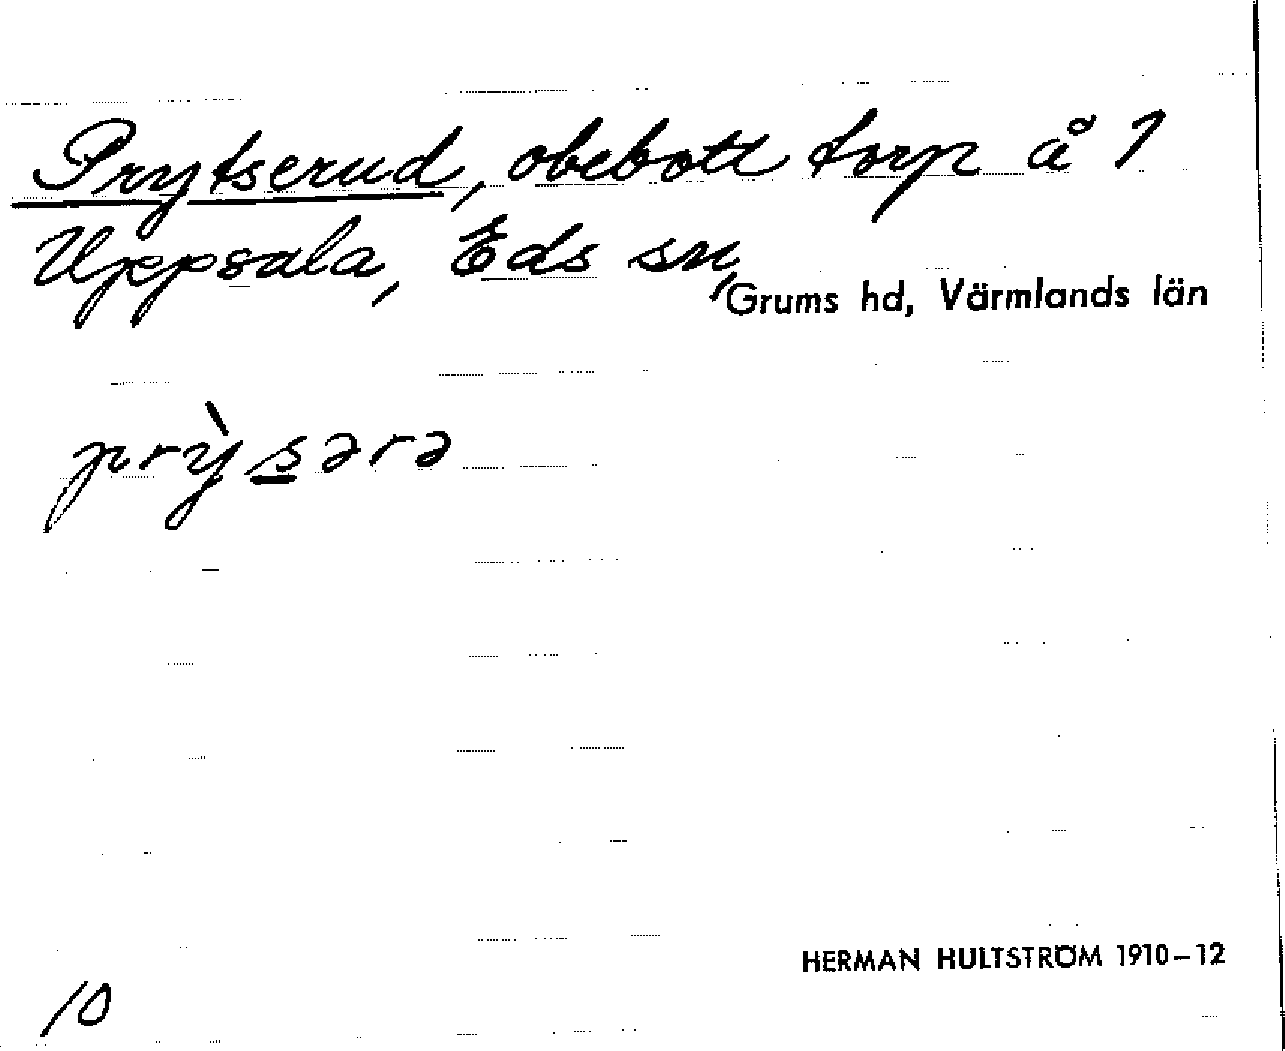 Prytserud, obebott torp å 1
Uppsala, Eds sn,
Grums hd, Värmlands län
prỳsərə
HERMAN HULTSTRÖM 1910–12
10